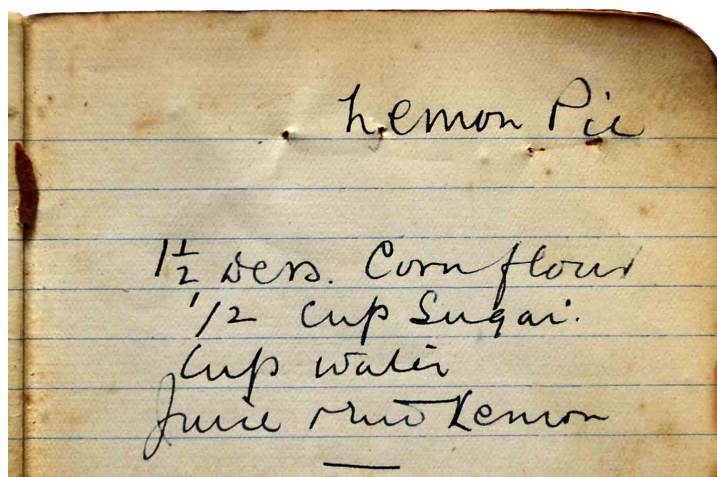 Lemon Pie
1½ Ders. Cornflour
1/2 Cup Sugar.
Cup water
Juice Lemon